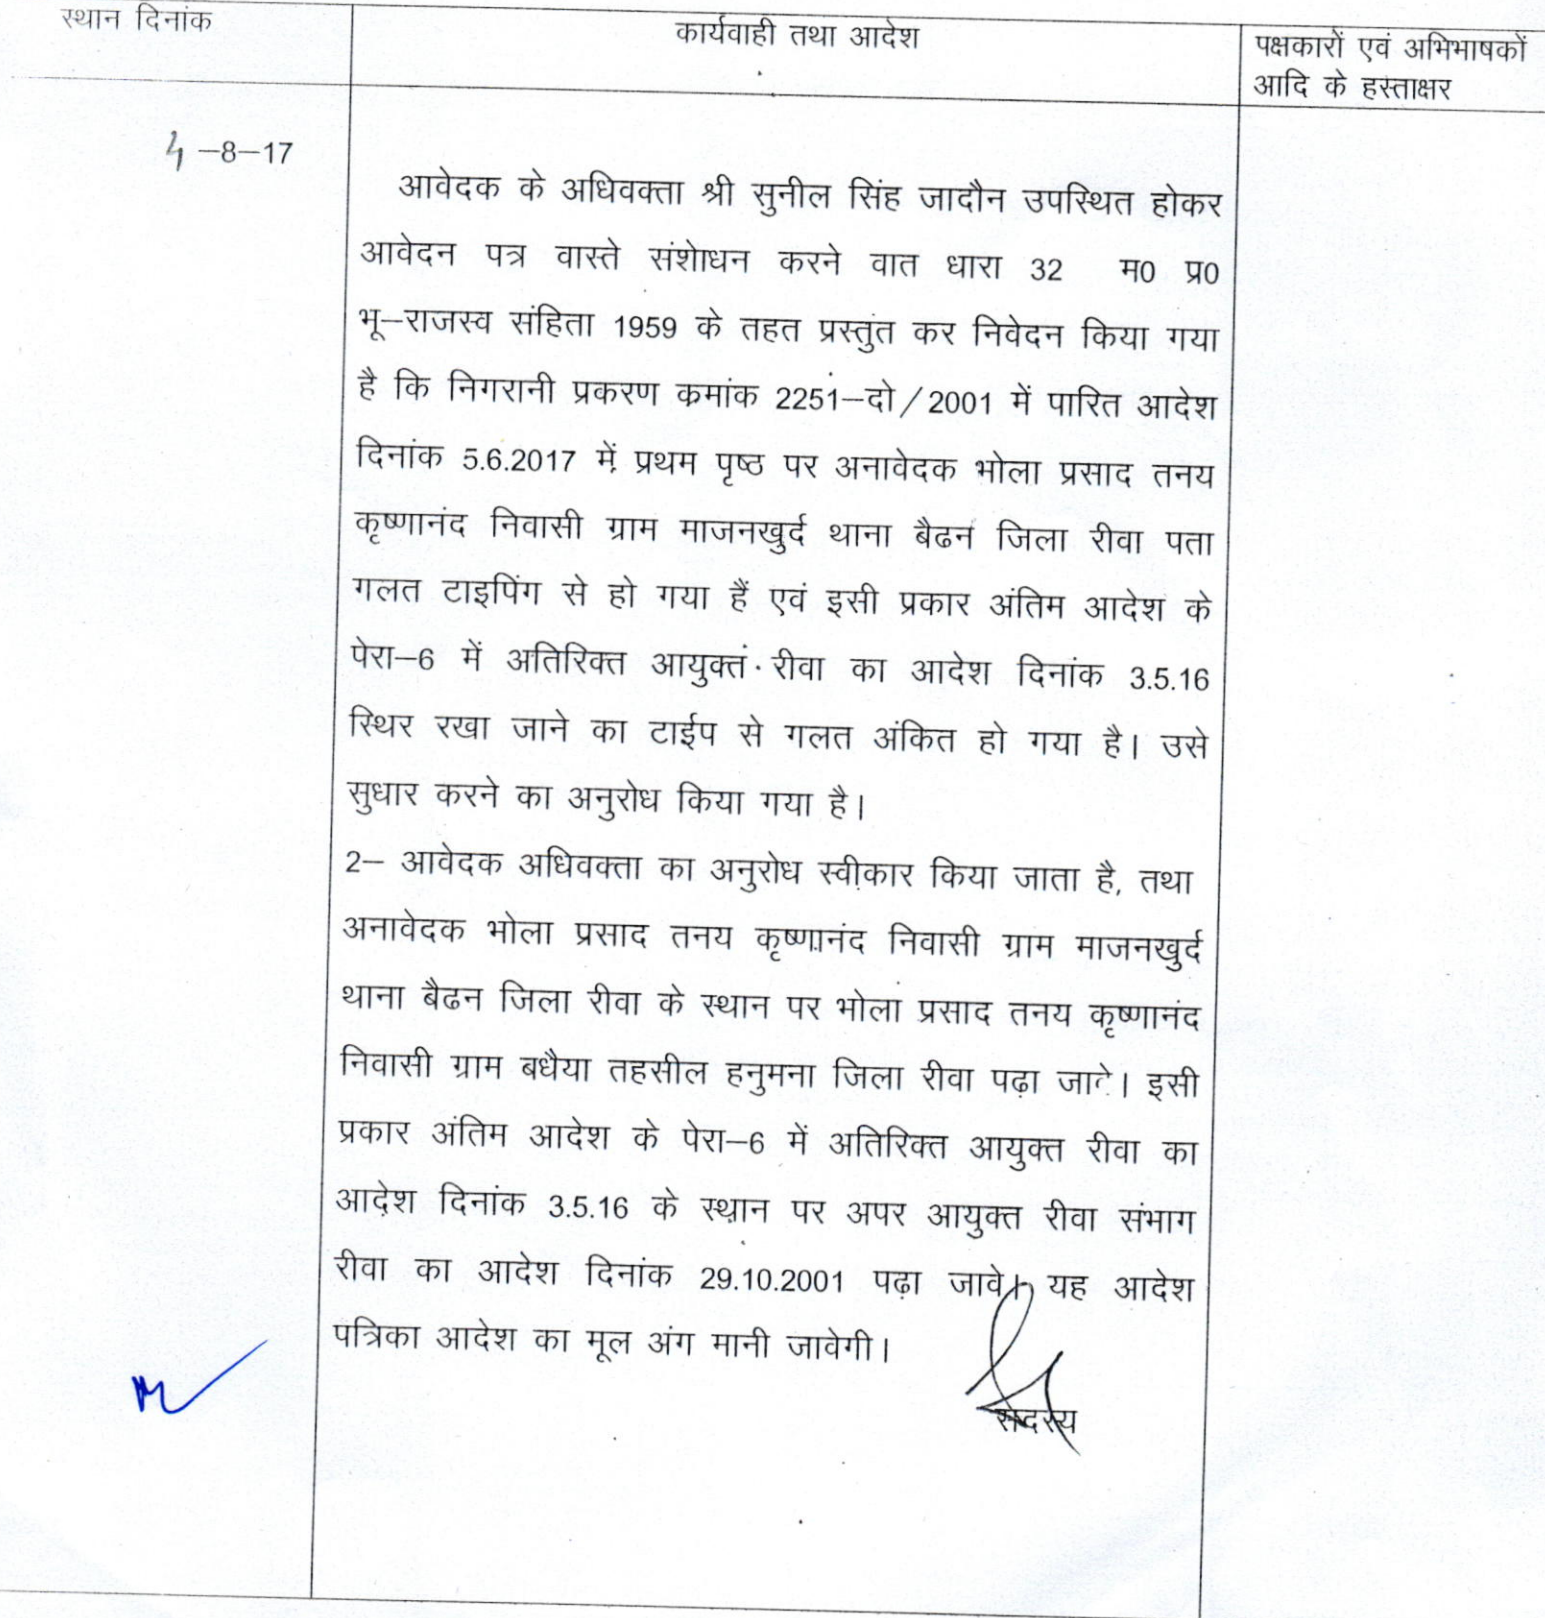 स्थान दिनांक
कार्यवाही तथा आदेश
पक्षकारों एवं अभिभाषकों
आदि के हस्ताक्षर
4-8-17
आवेदक के अधिवक्ता श्री सुनील सिंह जादौन उपस्थित होकर
आवेदन पत्र वास्ते संशोधन करने वात धारा 32 म0 प्र0
भू-राजस्व संहिता 1959 के तहत प्रस्तुत कर निवेदन किया गया
है कि निगरानी प्रकरण कमांक 2251-दो/2001 में पारित आदेश
दिनांक 5.6.2017 में प्रथम पृष्ठ पर अनावेदक भोला प्रसाद तनय
कृष्णानंद निवासी ग्राम माजनखुर्द थाना बैढन जिला रीवा पता
गलत टाइपिंग से हो गया हैं एवं इसी प्रकार अंतिम आदेश के
पेरा-6 में अतिरिक्त आयुक्त रीवा का आदेश दिनांक 3.5.16
स्थिर रखा जाने का टाईप से गलत अंकित हो गया है। उसे
सुधार करने का अनुरोध किया गया है।
2- आवेदक अधिवक्ता का अनुरोध स्वीकार किया जाता है, तथा
अनावेदक भोला प्रसाद तनय कृष्णानंद निवासी ग्राम माजनखुर्द
थाना बैढन जिला रीवा के स्थान पर भोला प्रसाद तनय कृष्णानंद
निवासी ग्राम बधैया तहसील हनुमना जिला रीवा पढ़ा जावे। इसी
प्रकार अंतिम आदेश के पेरा-6 में अतिरिक्त आयुक्त रीवा का
आदेश दिनांक 3.5.16 के स्थान पर अपर आयुक्त रीवा संभाग
रीवा का आदेश दिनांक 29.10.2001 पढ़ा जावे। यह आदेश
पत्रिका आदेश का मूल अंग मानी जावेगी।
सदस्य